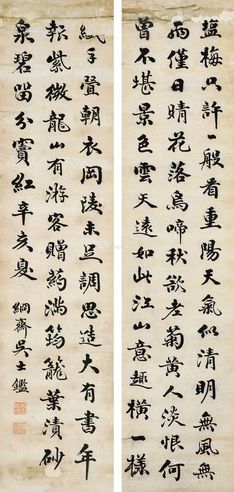 塩梅只許一般看重陽天氣似清明無風無
雨僅日晴花落鳥啼秋欲老菊黃人淡恨何
曾不堪景色雲天遠如此江山意趣橫一樣
手聲朝衣岡陵未足調思造大有書年
報紫微龍山有游客贈藥滿筠籠葉漬砂
泉碧留分竇紅辛亥夏 絅齋吳士鑑